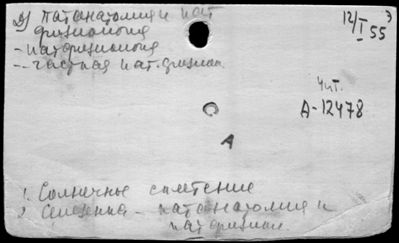 д) патанатомия и пат
физиология
- патфизиология
-- частная пат. физиол.
12/I 55 э
Чит.
А-12478
С
А
1. Солнечное сплетение
2. Селезенка - патанатомия и
патфизиол